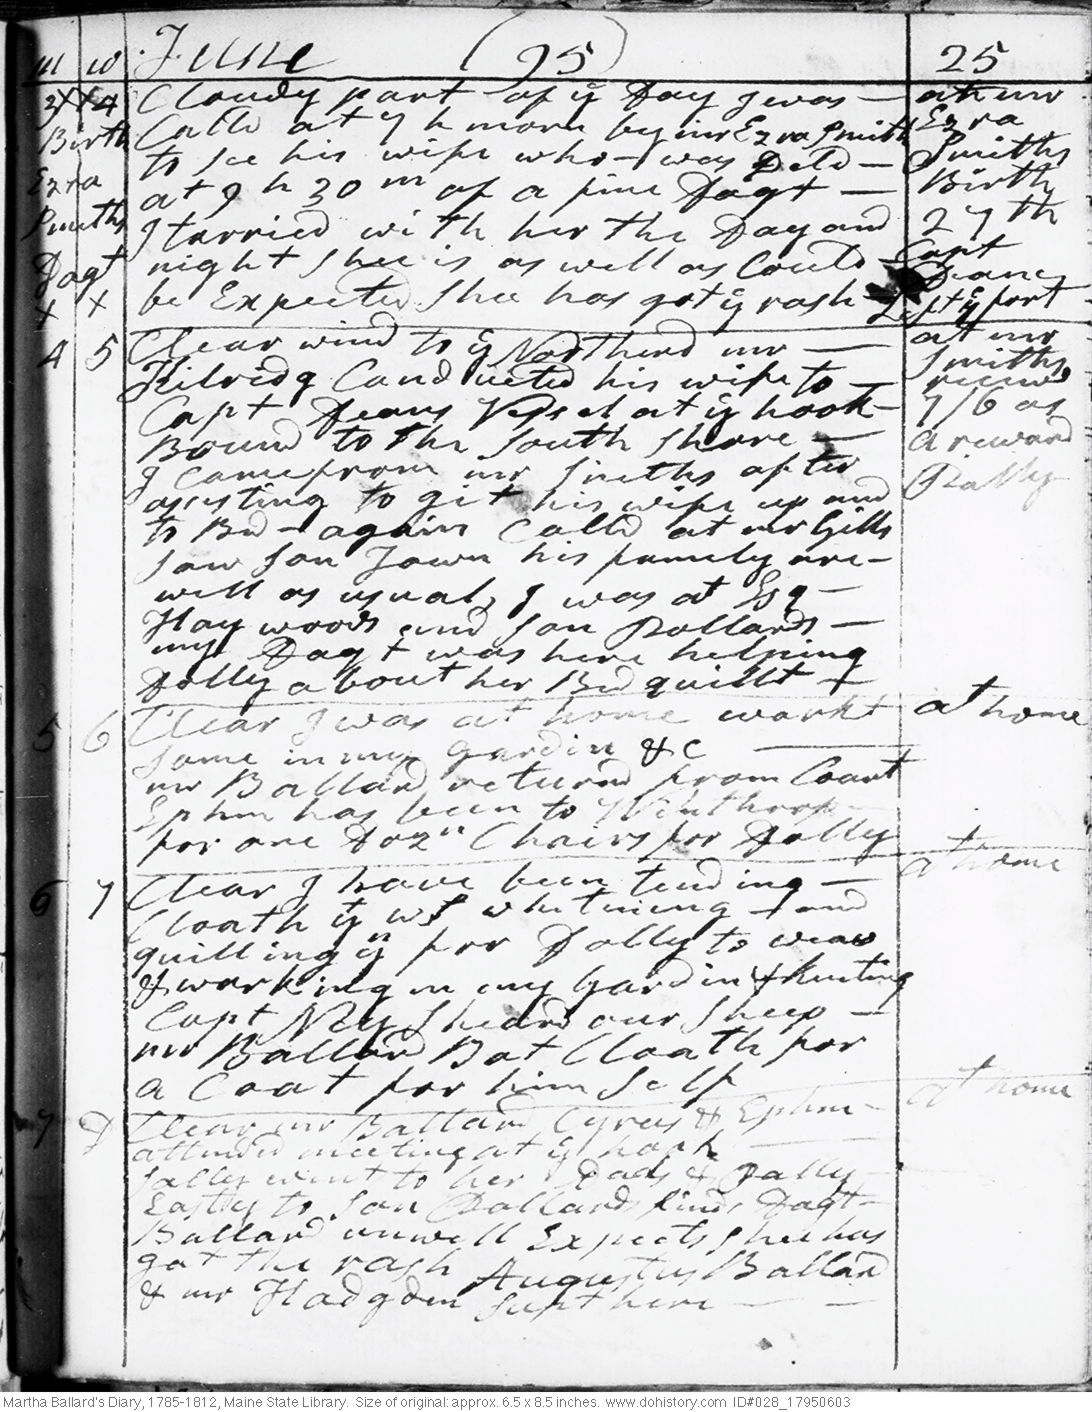 m w June (95) 25
3 XX 4 Cloudy part of ÿ Day I was — at mr
Birth Calld at 7 h morn by mr Ezra Smith Ezra
to see his wife who was Deld — Smiths
Ezra at 9 h 30 m of a fine Dagt — Birth
Smiths I tarried with her the Day and 27th
Dagt night shee is as well as Could Capt Deane
X X be Expected shee has got ÿ rash left ÿ port
4 5 Clear wind to ÿ Northerd mr — at mr
Kilredg Conducted his wife to — Smiths
Capt Deans Vessel at ÿ hook — receivd 7/6 as
Bound to the South Shore — a reward
I Came from mr Smiths after Rally
assisting to git his wife up and
to Bed again Calld at mr Gills
saw son Town his family are —
well as usual, I was at Esq —
Haywoods and son Pollards —
my Dagt was here helping
Dolly about her Bed quillt —
5 6 Clear I was at home workt at home
some in my gardin & c
mr Ballard returnd from Coart
Ephm has been to Winthrop
for one Dozn Chairs for Dolly
6 7 Clear I have been tending — at home
Cloath ÿt is whitning — and
quilling ÿn for Dolly to weav
& working in my gardin & knitting
Capt Ney sheard our sheep —
mr Ballard Bot Cloath for
a Coat for him self
7 D Clear mr Ballard Cyrus & Ephm — at home
attended meeting at ÿ hook
Sally went to her Dads & Dally
to son Pollards finds Dagt
Ballard unwell Expects shee has
got the rash Augustus Ballard
& mr Hodgden supt here —
Martha Ballard's Diary, 1785-1812, Maine State Library. Size of original: approx. 6.5 x 8.5 inches. www.dohistory.com ID#028_17950603